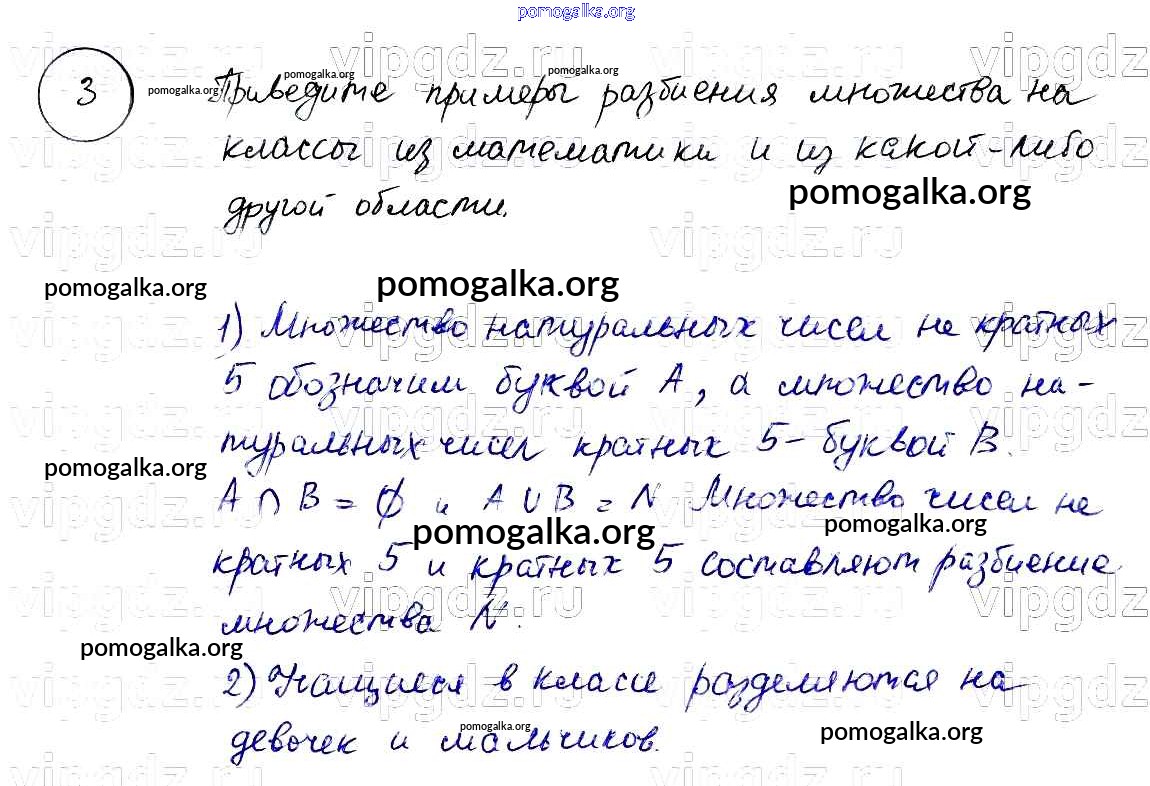 pomogalka.org
vipgdz.ru vipgdz.ru vipgdz
3 pomogalka.org Приведите примеры разбиения множества на
pomogalka.org pomogalka.org
классы из математики и из какой-либо
pomogalka.org
другой области.
vipgdz.ru vipgdz.ru
pomogalka.org pomogalka.org
1) Множество натуральных чисел не кратных
5 обозначим буквой А, а множество на-
туральных чисел кратных 5 - буквой В.
pomogalka.org
A ∩ B = ∅ и A U B = N. Множество чисел не
pomogalka.org pomogalka.org
кратных 5 и кратных 5 составляют разбиение
vipgdz.ru vipgdz.ru vipgdz
множества N.
pomogalka.org
2) Учащиеся в классе разделяются на
девочек и мальчиков.
pomogalka.org pomogalka.org
vipgdz.ru vipgdz.ru vipgdz